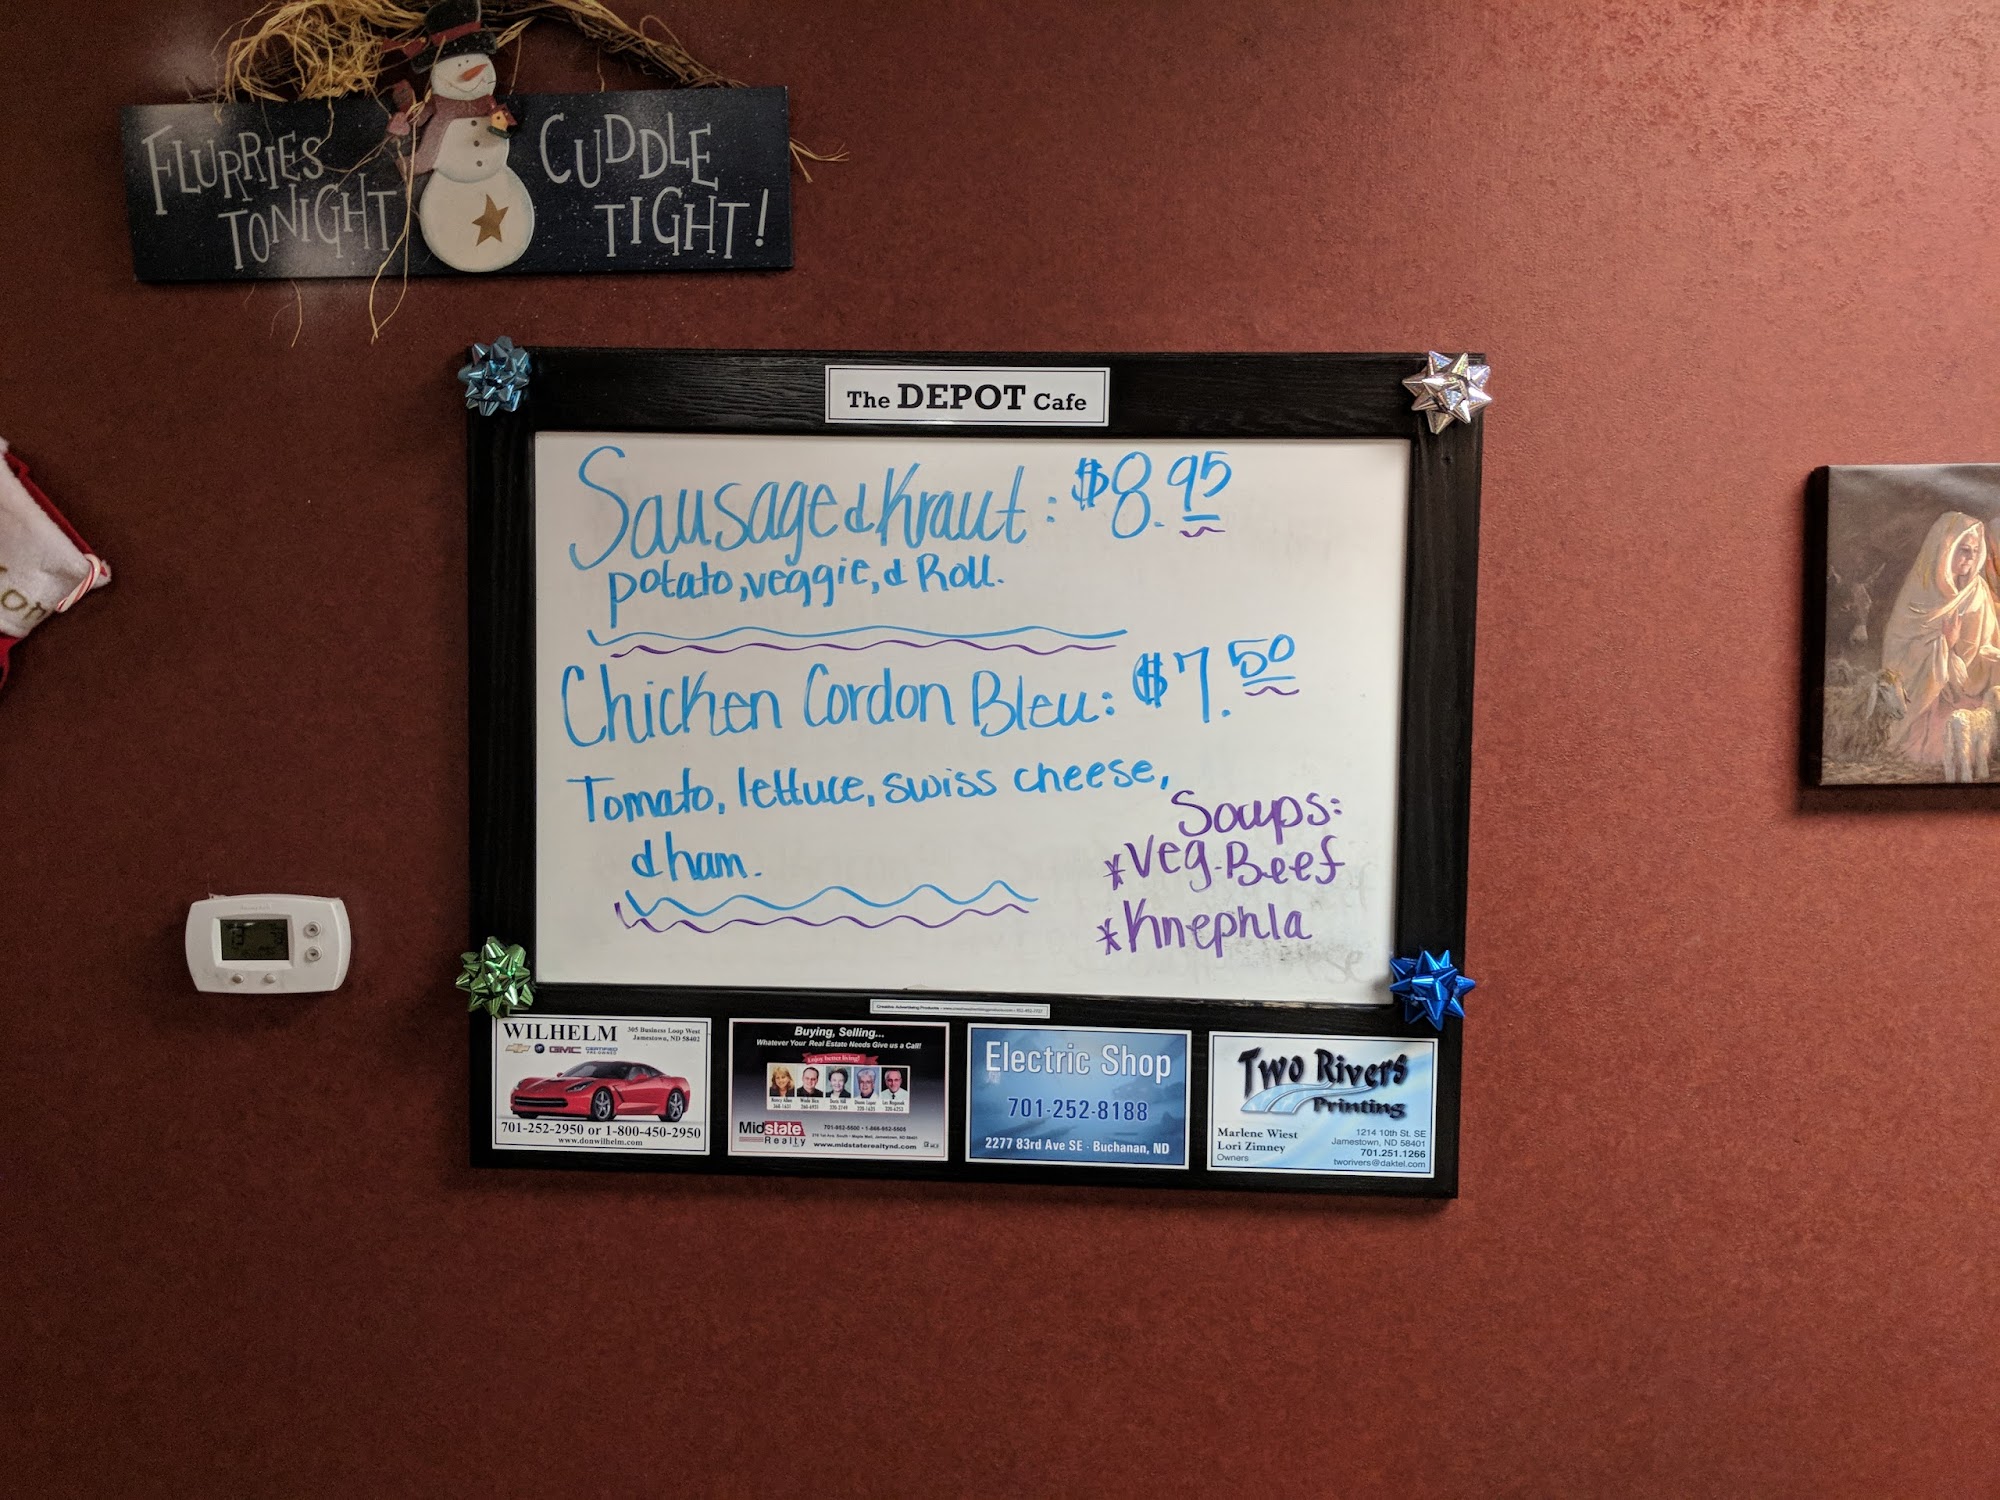 FLURRIES
TONIGHT
CUDDLE
TIGHT!
The DEPOT Cafe
Sausage & Kraut: $8.95
potato, veggie, & Roll.
Chicken Cordon Bleu: $7.50
Tomato, lettuce, swiss cheese,
& ham.
Soups:
*Veg. Beef
*Knephla
WILHELM
305 Business Loop West
Jamestown, ND 58402
GMC CERTIFIED
701-252-2950 or 1-800-450-2950
www.donwilhelm.com
Buying, Selling...
Whatever Your Real Estate Needs Give us a Call!
Enjoy better living!
Midstate
Realty
www.midstaterealtynd.com
Electric Shop
701-252-8188
2277 83rd Ave SE - Buchanan, ND
Two Rivers
Printing
Marlene Wiest
Lori Zimney
Owners
1214 10th St. SE
Jamestown, ND 58401
701.251.1266
tworivers@daktel.com